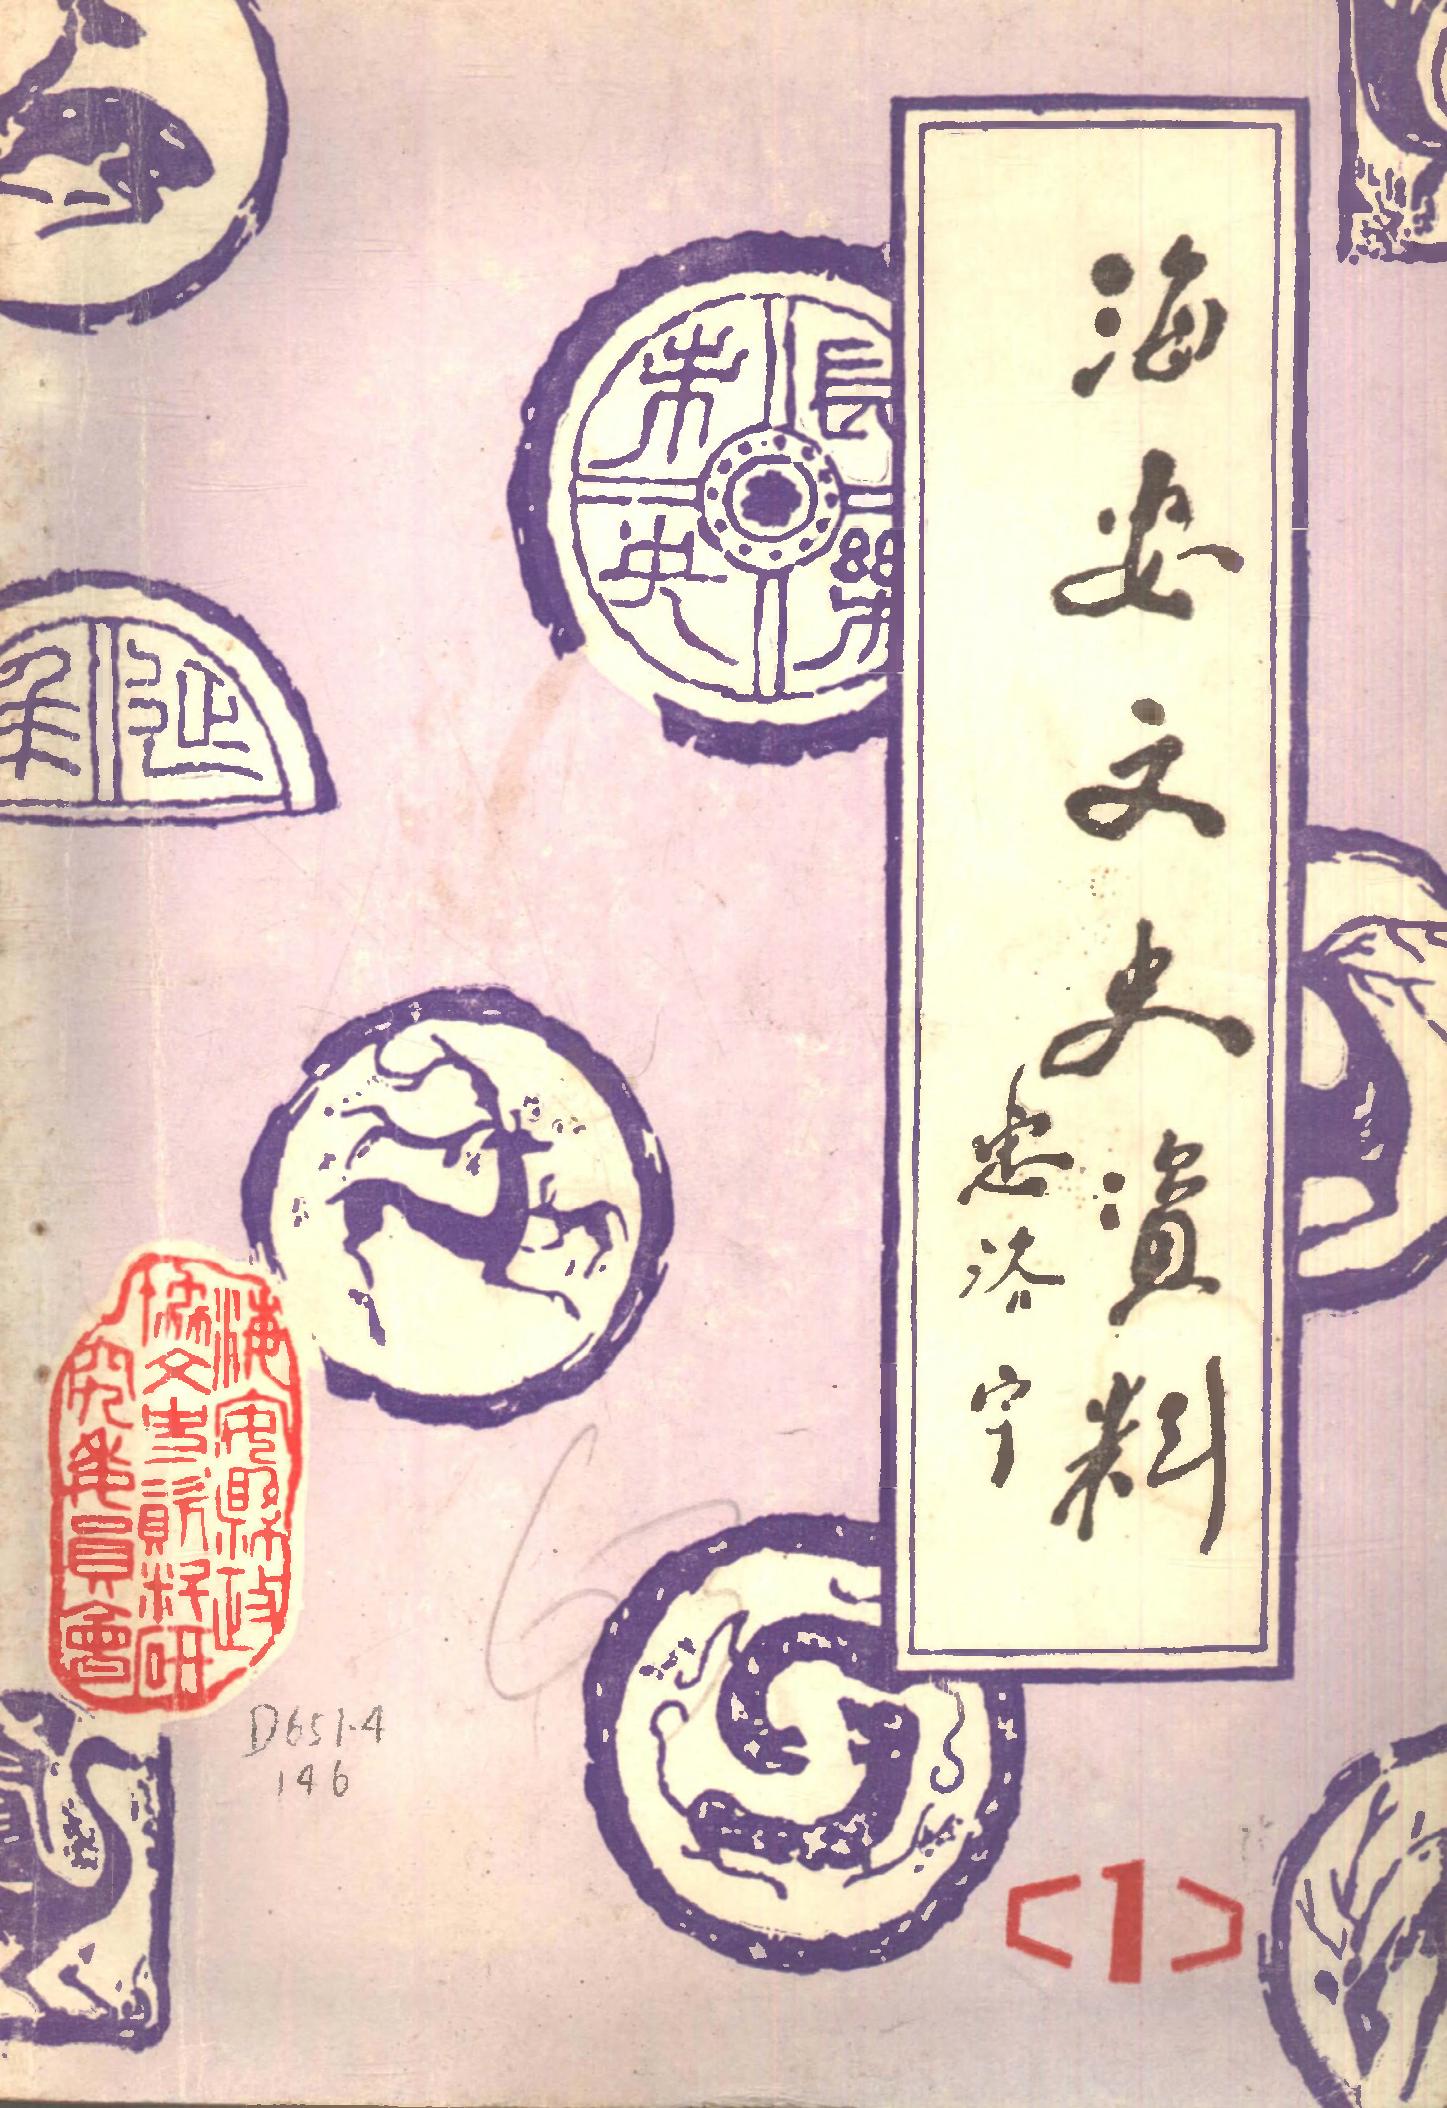 海安文史資料
惠浴宇
長樂
未央
延年
海安縣政
協文史資料研
究委員會
D651.4
146
<1>